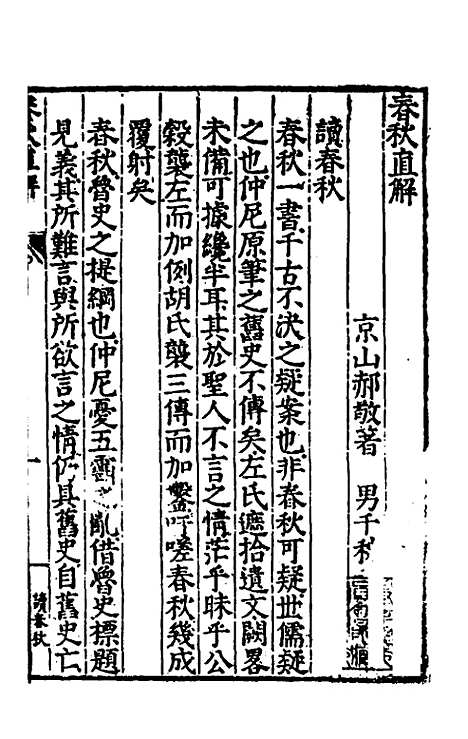 春秋直解
京山郝敬著　男千
讀春秋
春秋一書千古不決之疑案也非春秋可疑世儒疑
之也仲尼原筆之舊史不傳矣左氏遮拾遺文闕畧
未備可據纔半耳其於聖人不言之情茫乎昧乎公
穀襲左而加例胡氏襲三傳而加鑿吁嗟春秋幾成
覆射矣
春秋魯史之提綱也仲尼憂五霸之亂借魯史標題
見義其所難言與所欲言之情仍具舊史自舊史亡
讀春秋